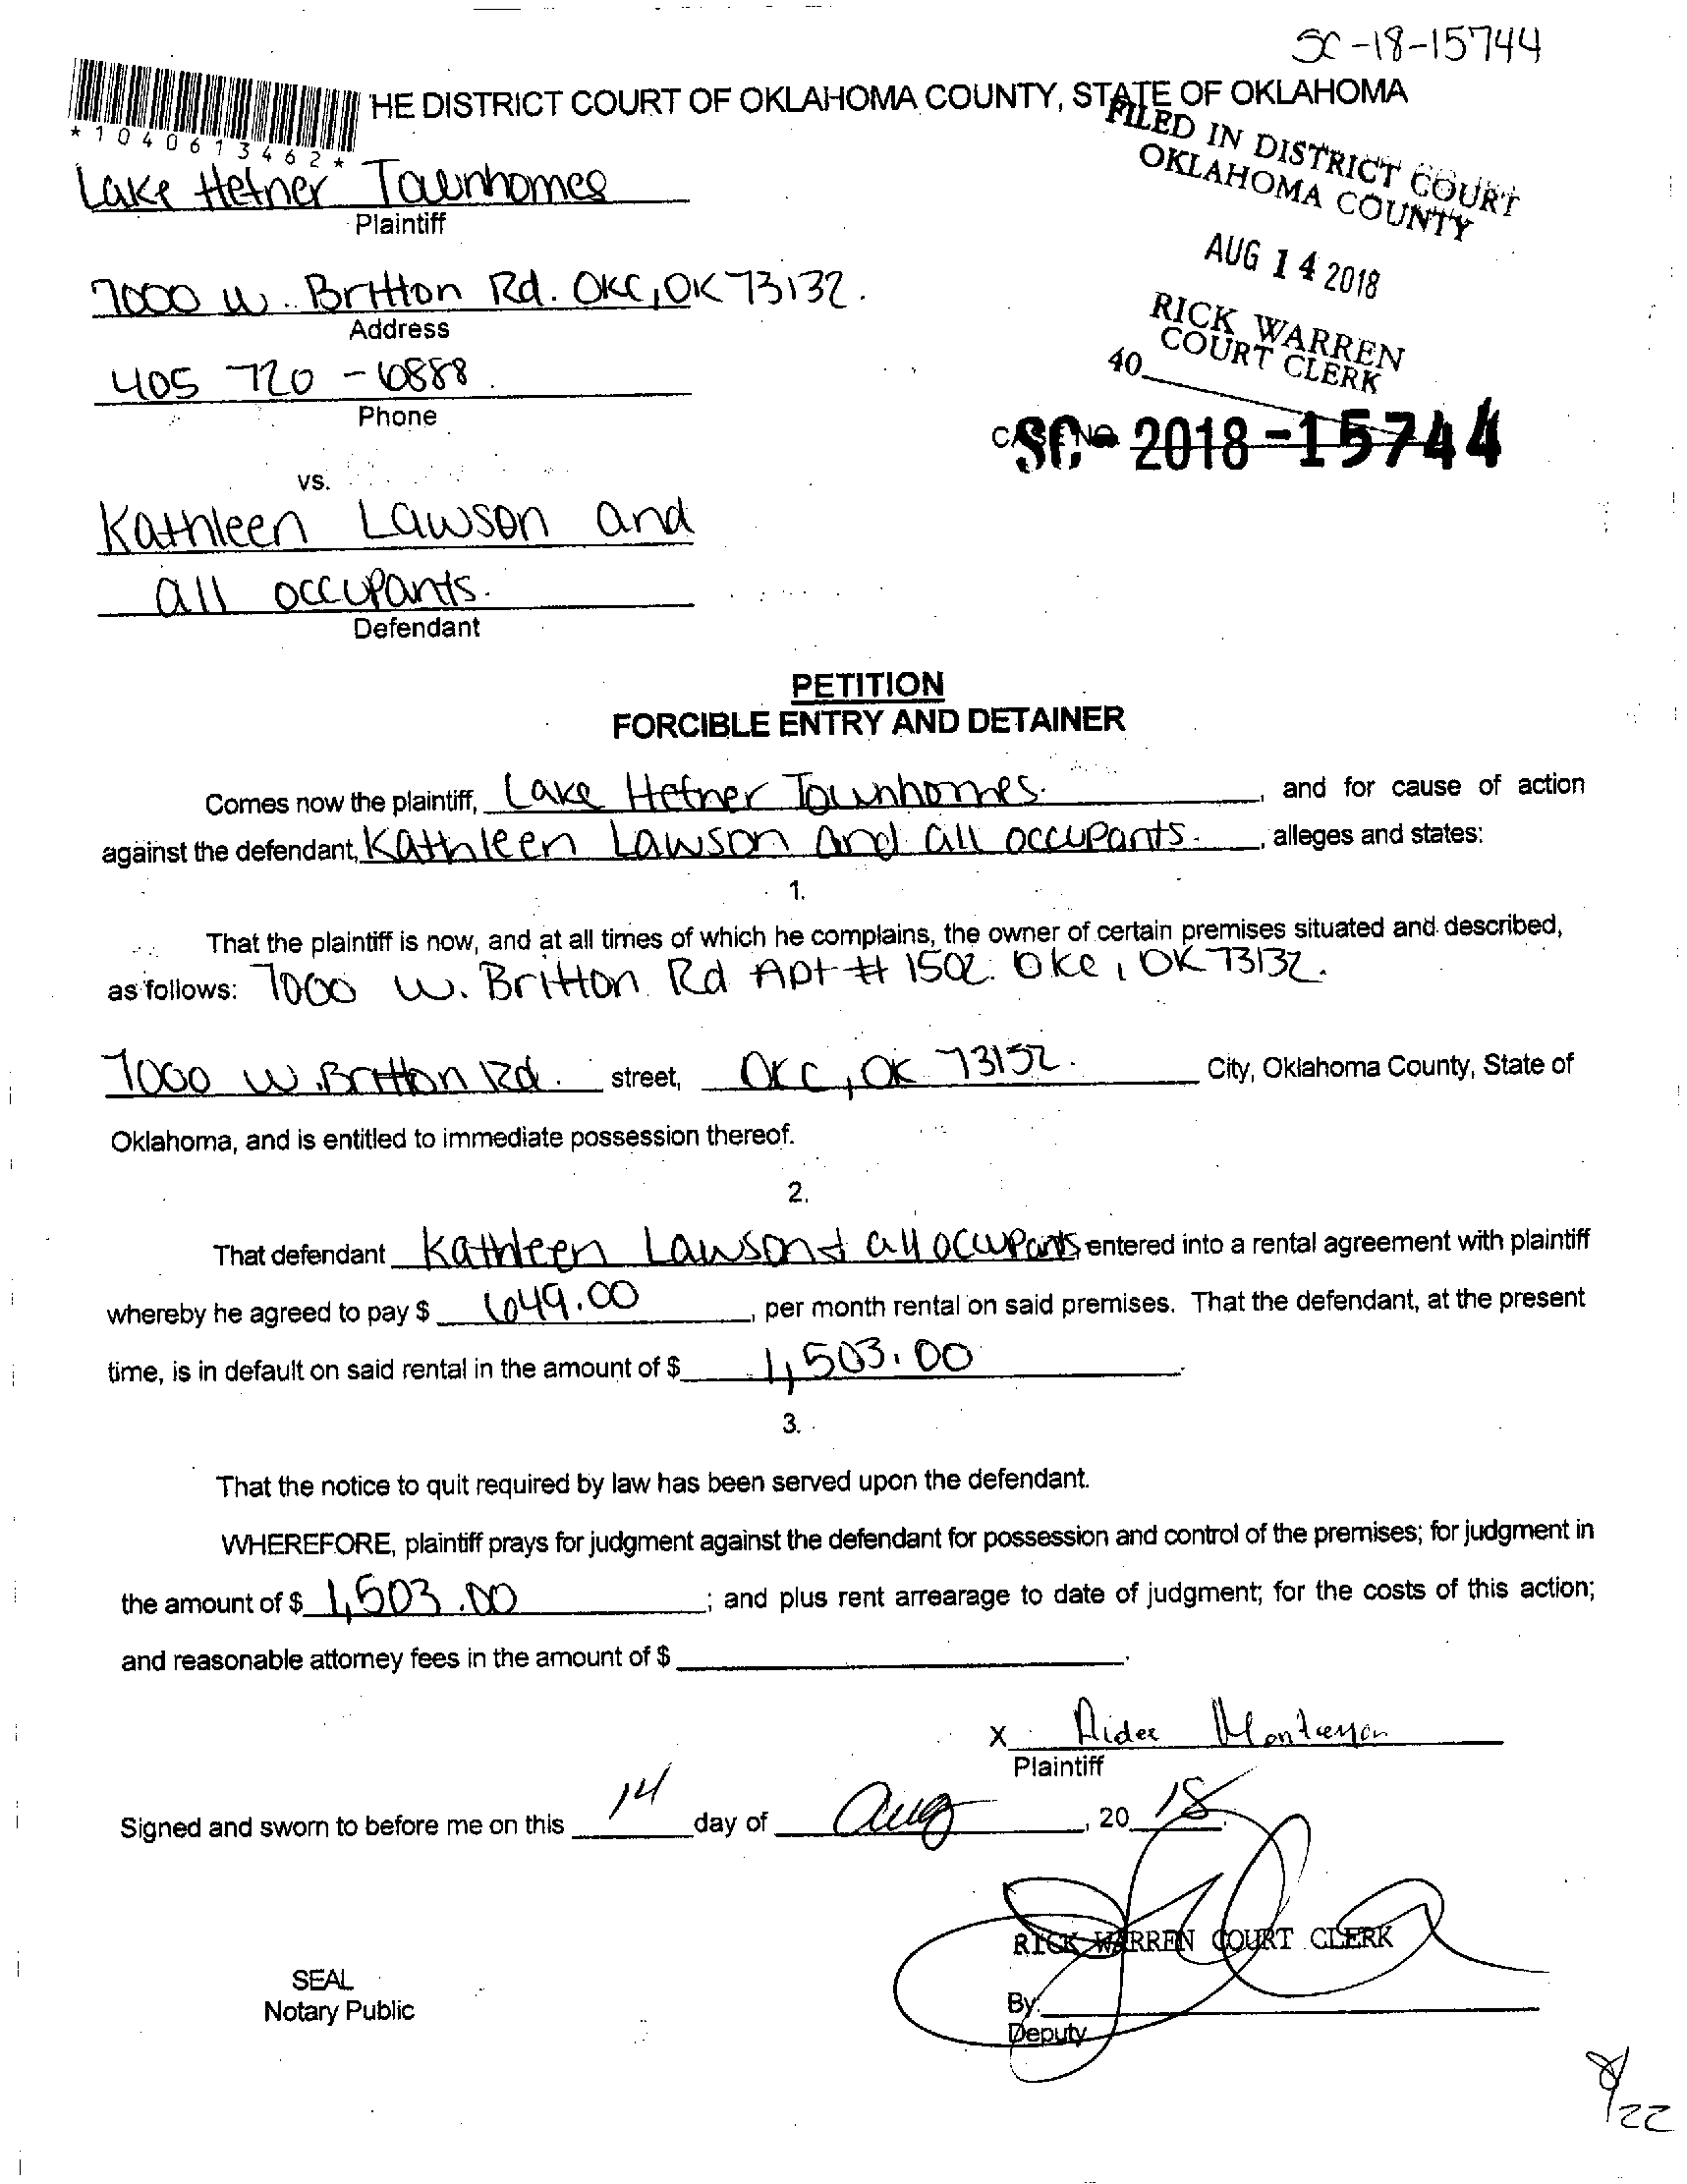 SC-18-15744
HE DISTRICT COURT OF OKLAHOMA COUNTY, STATE OF OKLAHOMA
*1040613462*
FILED IN DISTRICT COURT
OKLAHOMA COUNTY
Lake Hefner Townhomes
Plaintiff
AUG 14 2018
7000 W. Britton Rd. OKC, OK 73132.
Address
RICK WARREN
COURT CLERK
40
405 720-6888
Phone
CASE NO.
SC- 2018-15744
vs.
Kathleen Lawson and
all occupants.
Defendant
PETITION
FORCIBLE ENTRY AND DETAINER
Comes now the plaintiff, Lake Hefner Townhomes. , and for cause of action
against the defendant, Kathleen Lawson and all occupants. , alleges and states:
1.
That the plaintiff is now, and at all times of which he complains, the owner of certain premises situated and described,
as follows: 7000 W. Britton Rd Apt # 1502. Okc, OK 73132.
7000 W. Britton Rd. street, OKC, OK 73132. City, Oklahoma County, State of
Oklahoma, and is entitled to immediate possession thereof.
2.
That defendant Kathleen Lawson & all occupants entered into a rental agreement with plaintiff
whereby he agreed to pay $ 649.00 , per month rental on said premises. That the defendant, at the present
time, is in default on said rental in the amount of $ 1,503.00 .
3.
That the notice to quit required by law has been served upon the defendant.
WHEREFORE, plaintiff prays for judgment against the defendant for possession and control of the premises; for judgment in
the amount of $ 1,503.00 ; and plus rent arrearage to date of judgment; for the costs of this action;
and reasonable attorney fees in the amount of $ .
X Aidee
Plaintiff
Signed and sworn to before me on this 14 day of Aug , 20 18 .
RICK WARREN COURT CLERK
SEAL
Notary Public
By:
Deputy
8/22